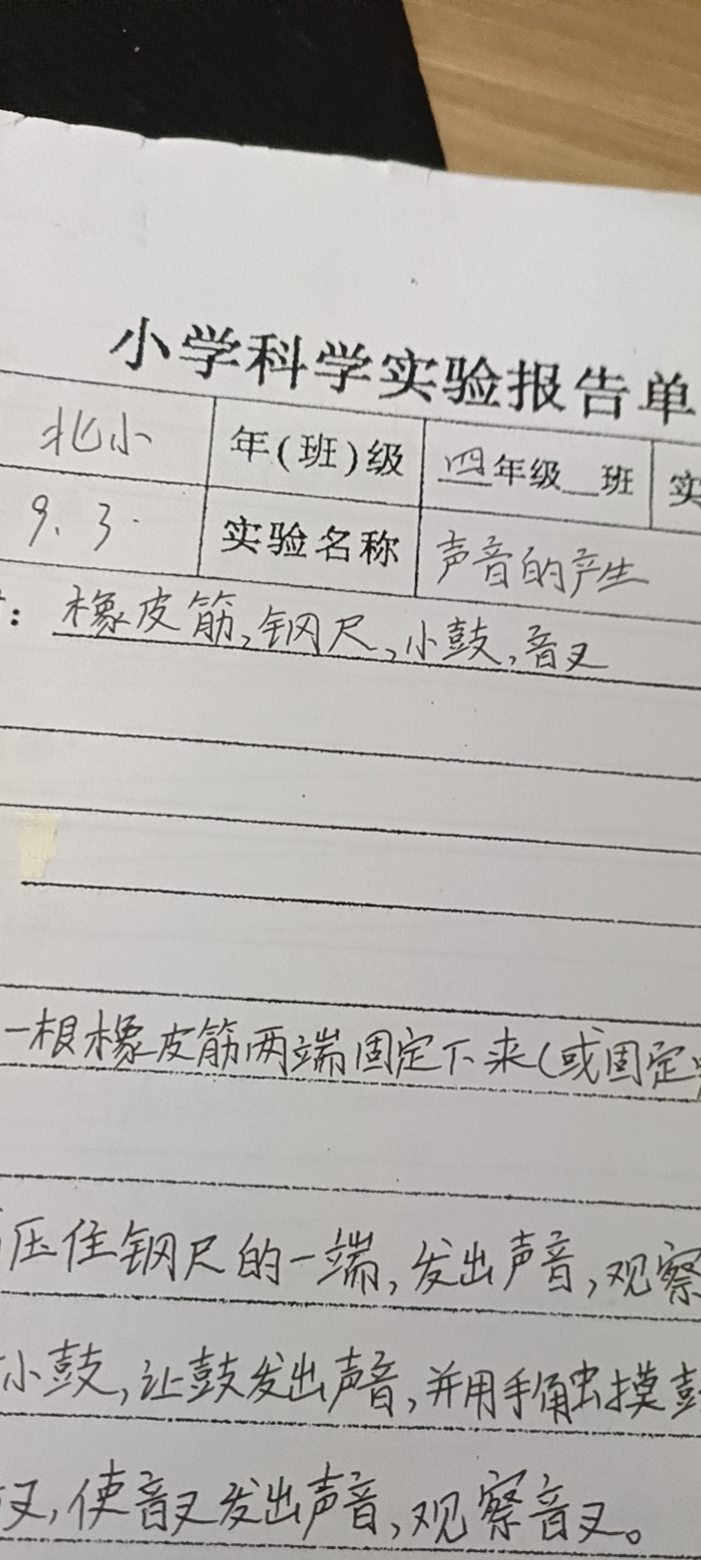 小学科学实验报告单
北小 年(班)级 四年级__班 实
9.3. 实验名称 声音的产生
：橡皮筋,钢尺,小鼓,音叉
一根橡皮筋两端固定下来(或固定
压住钢尺的一端,发出声音,观察
小鼓,让鼓发出声音,并用手触摸鼓
叉,使音叉发出声音,观察音叉。